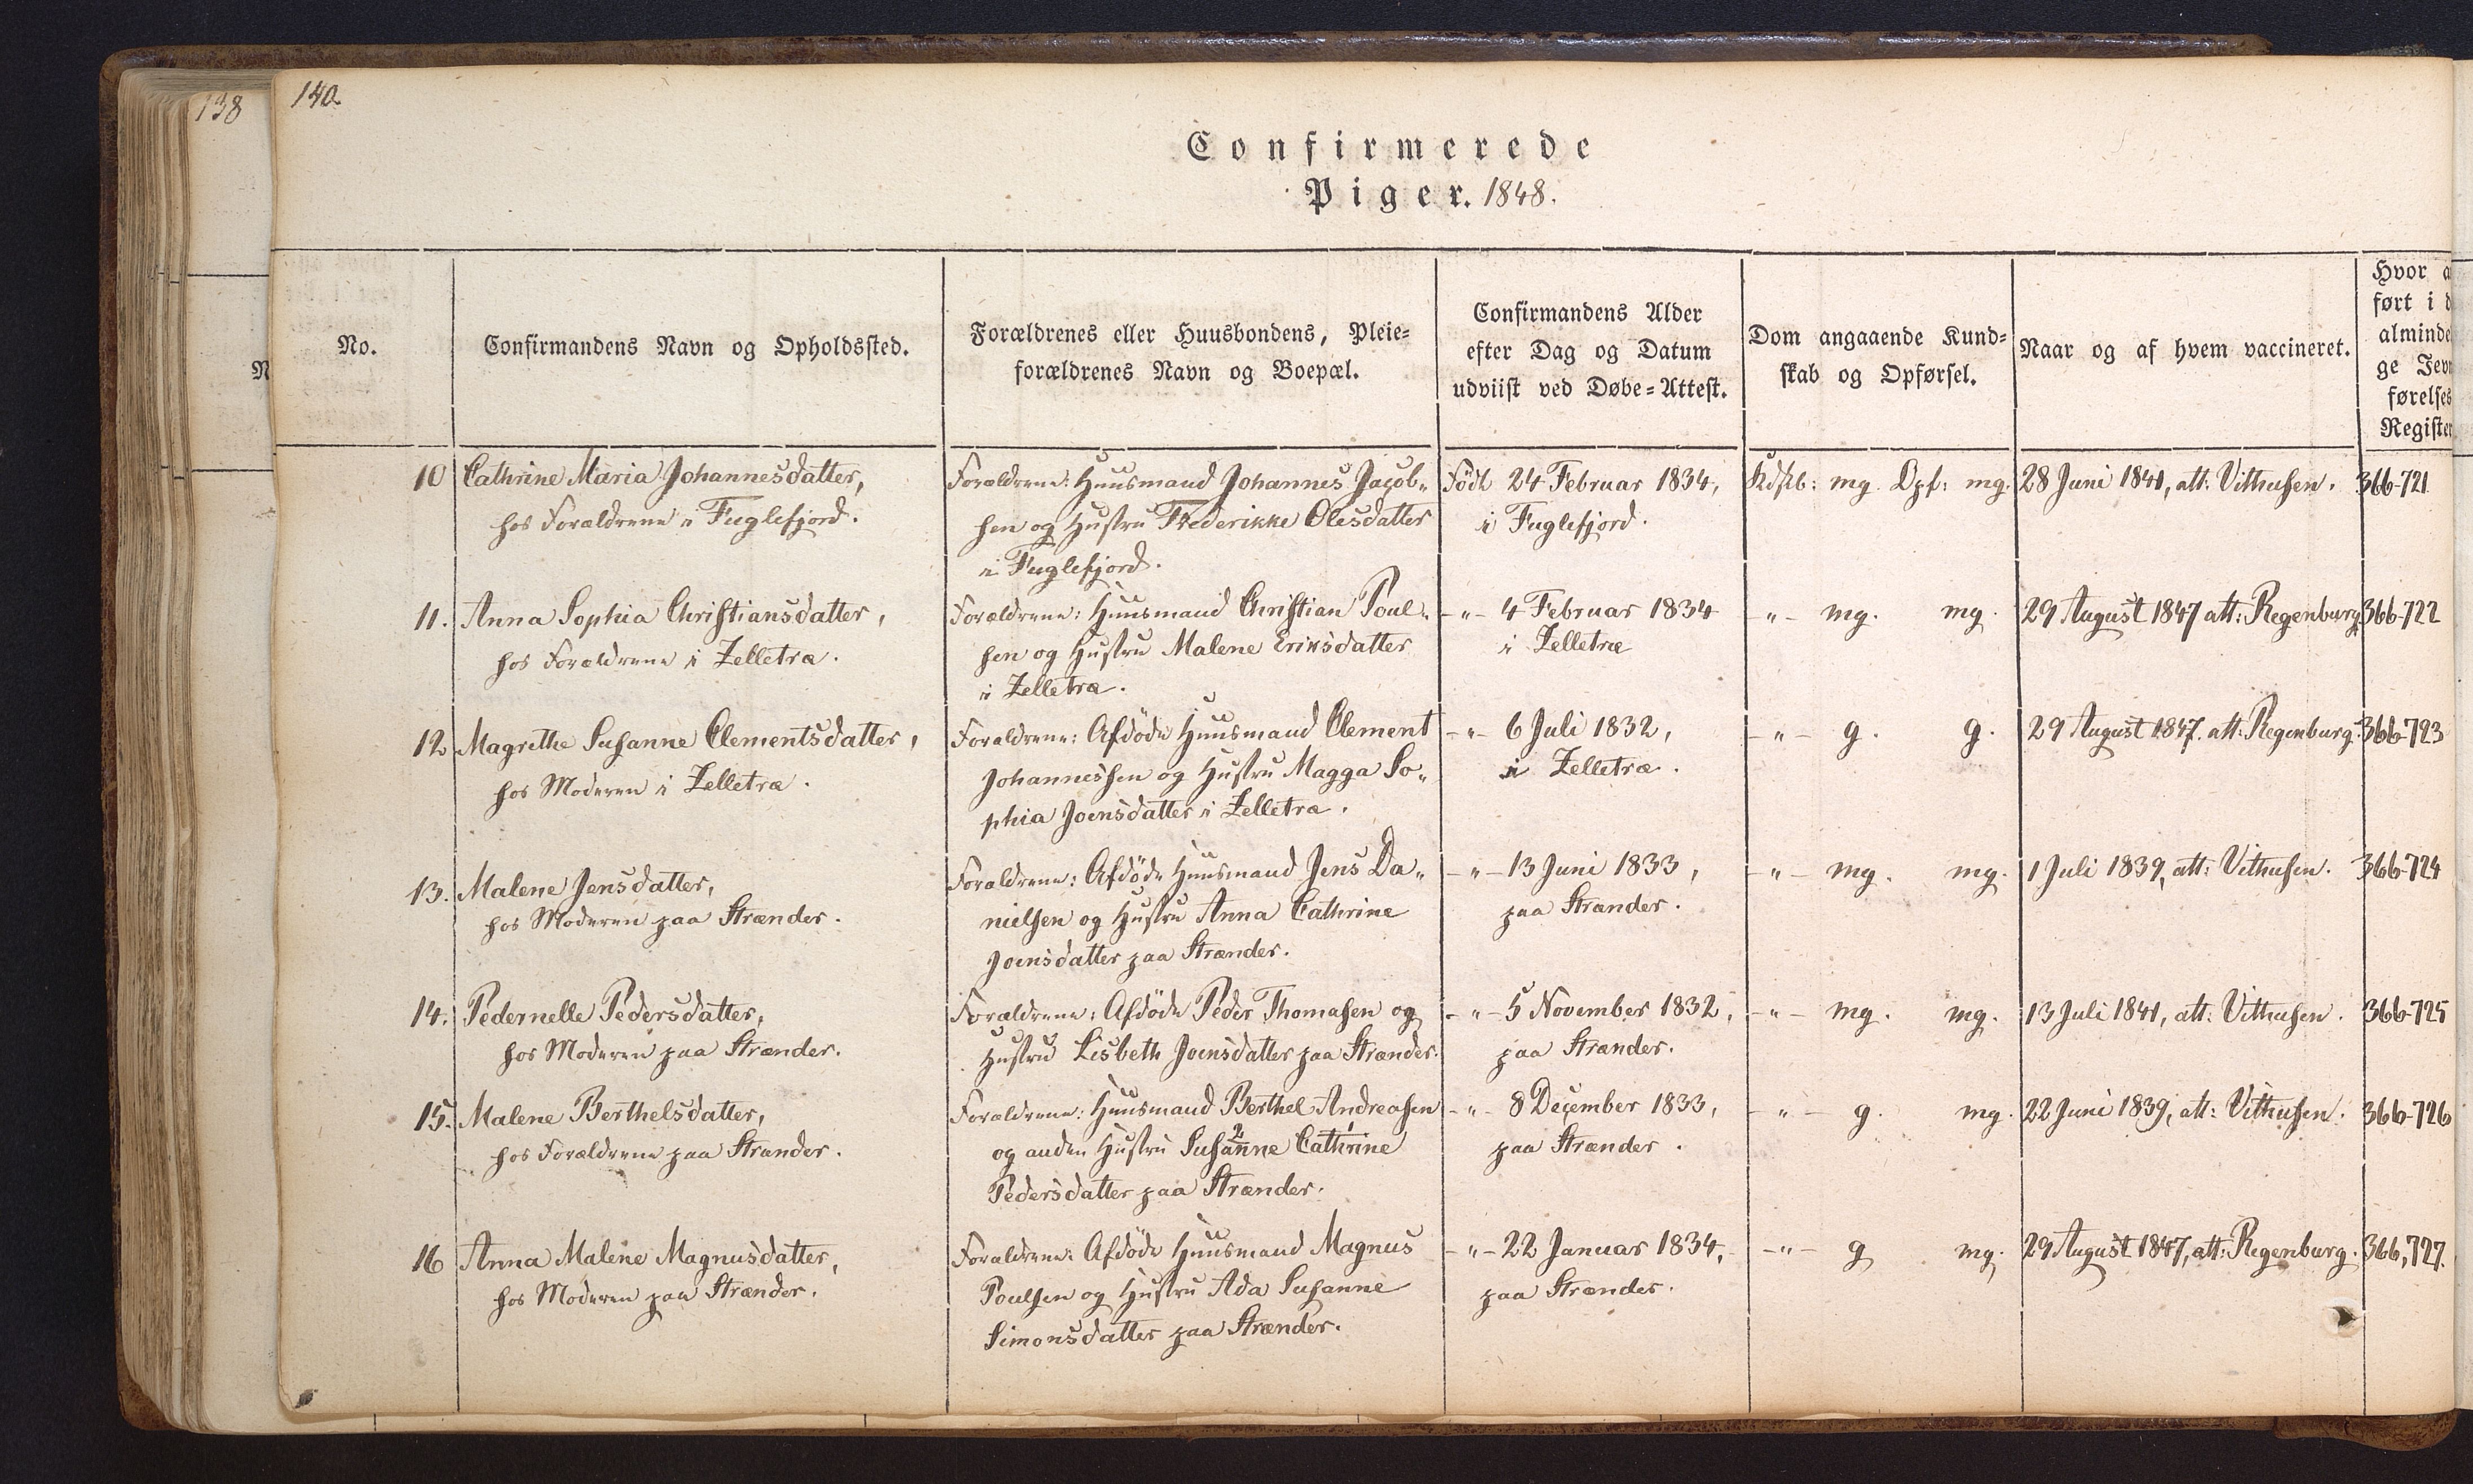 138
140.
Confirmerede
Piger. 1848.
No.
Confirmandens Navn og Opholdssted.
Forældrenes eller Huusbondens, Pleie-
forældrenes Navn og Boepæl.
Confirmandens Alder
efter Dag og Datum
udviist ved Døbe-Attest.
Dom angaaende Kund-
skab og Opførsel.
Naar og af hvem vaccineret.
Hvor a
ført i d
alminde
ge Jevn
førelses
Register
N
10 Cathrine Maria Johannesdatter,
hos Forældrene i Fuglefjord.
Forældrene: Huusmand Johannes Jacob-
sen og Hustru Frederikke Olesdatter
i Fuglefjord.
Født 24 Februar 1834,
i Fuglefjord.
Kdskb: mg. Opf: mg.
28 Juni 1841, att: Vithusen.
366-721
11. Anna Sophia Christiansdatter,
hos Forældrene i Zelletræ.
Forældrene: Huusmand Christian Poul-
sen og Hustru Malene Eriksdatter
i Zelletræ.
-"- 4 Februar 1834
i Zelletræ
-"- mg. mg.
29 August 1847 att: Regenburg
366-722
12 Magrethe Susanne Clementsdatter,
hos Moderen i Zelletræ.
Forældrene: Afdöde Huusmand Clement
Johannessen og Hustru Magga So-
phia Joensdatter i Zelletræ.
-"- 6 Juli 1832,
i Zelletræ.
-"- g. g.
29 August 1847. att: Regenburg.
366-723
13. Malene Jensdatter,
hos Moderen paa Strænder.
Forældrene: Afdöde Huusmand Jens Da-
nielsen og Hustru Anna Cathrine
Joensdatter paa Strænder.
-"- 13 Juni 1833,
paa Strænder.
-"- mg. mg.
1 Juli 1839, att: Vithusen.
366-724
14. Pedernelle Pedersdatter,
hos Moderen paa Strænder.
Forældrene: Afdöde Peder Thomasen og
Hustru Lisbeth Joensdatter paa Strænder.
-"- 5 November 1832,
paa Strænder.
-"- mg. mg.
13 Juli 1841, att: Vithusen.
366-725
15. Malene Berthelsdatter,
hos Forældrene paa Strænder.
Forældrene: Huusmand Berthel Andreasen
og anden Hustru Susanne Cathrine
Pedersdatter paa Strænder.
-"- 8 December 1833,
paa Strænder.
-"- g. mg.
22 Juni 1839, att: Vithusen.
366-726
16 Anna Malene Magnusdatter,
hos Moderen paa Strænder.
Forældrene: Afdöde Huusmand Magnus
Poulsen og Hustru Ada Susanne
Simonsdatter paa Strænder.
-"- 22 Januar 1834,
paa Strænder.
-"- g mg.
29 August 1847, att: Regenburg.
366,727.